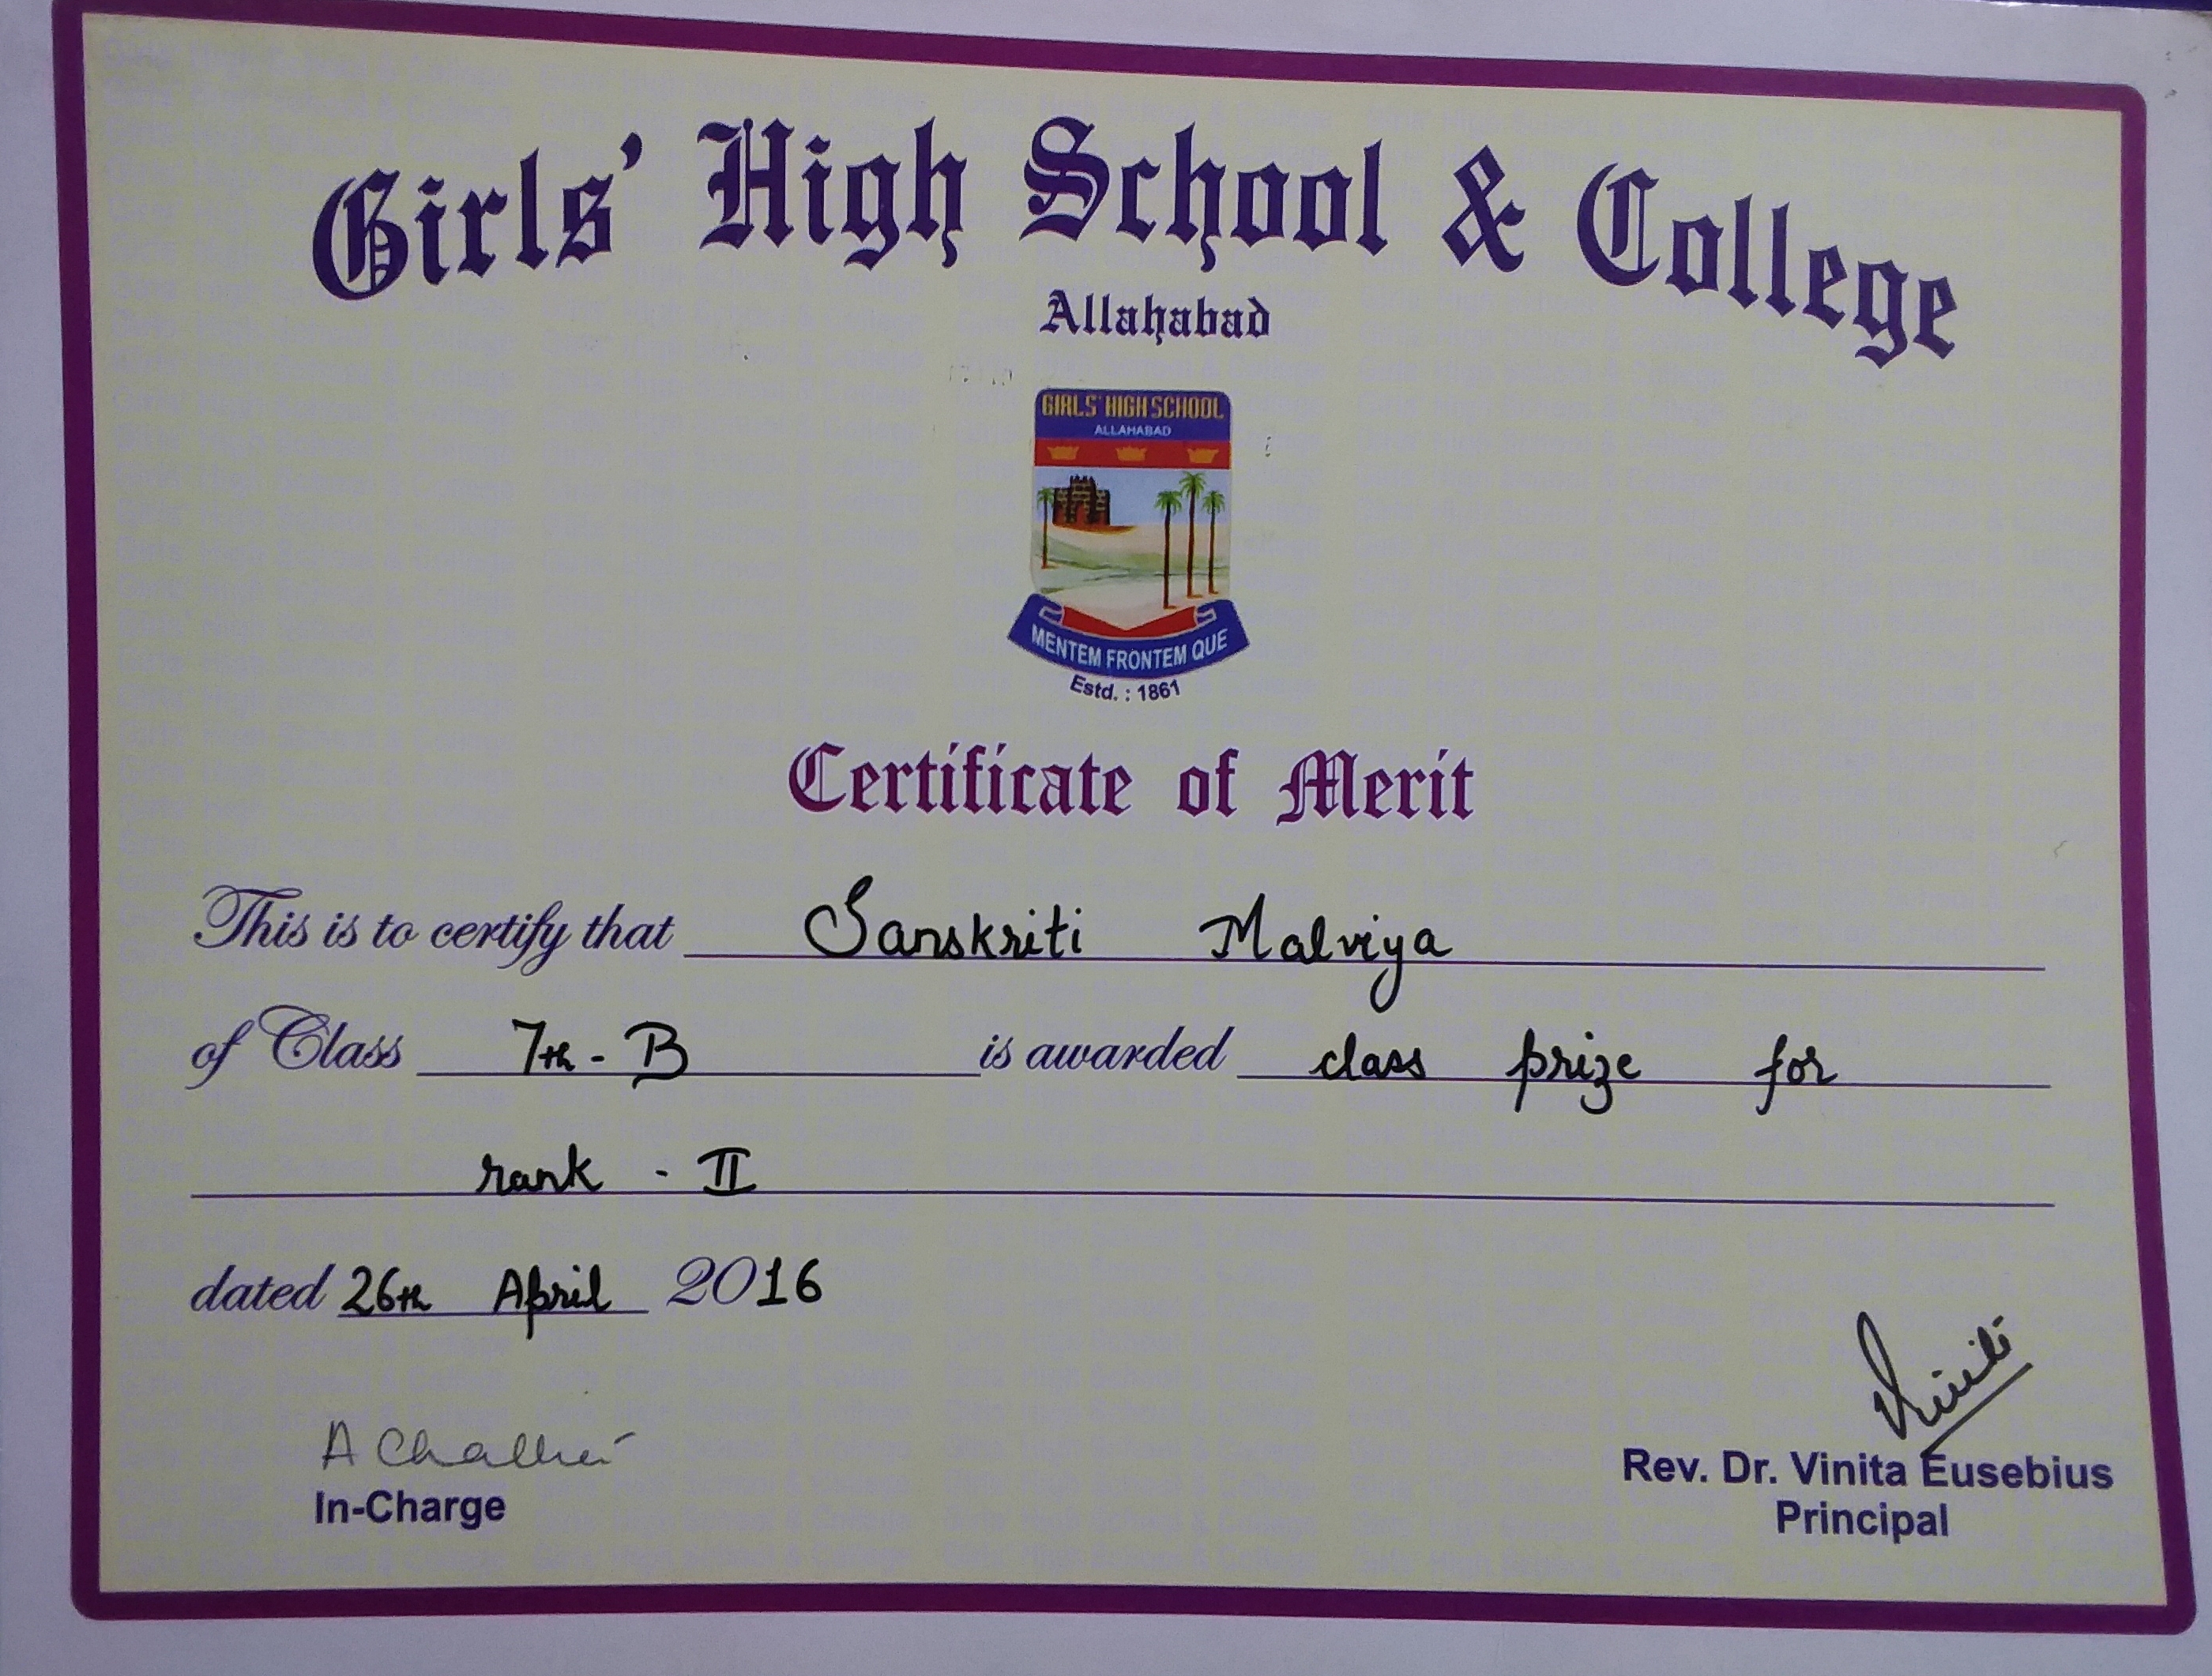 Girls' High School & College
Allahabad
GIRLS' HIGH SCHOOL
ALLAHABAD
MENTEM FRONTEM QUE
Estd. : 1861
Certificate of Merit
This is to certify that Sanskriti Malviya
of Class 7th - B is awarded class prize for
rank - II
dated 26th April 2016
A
In-Charge
Rev. Dr. Vinita Eusebius
Principal